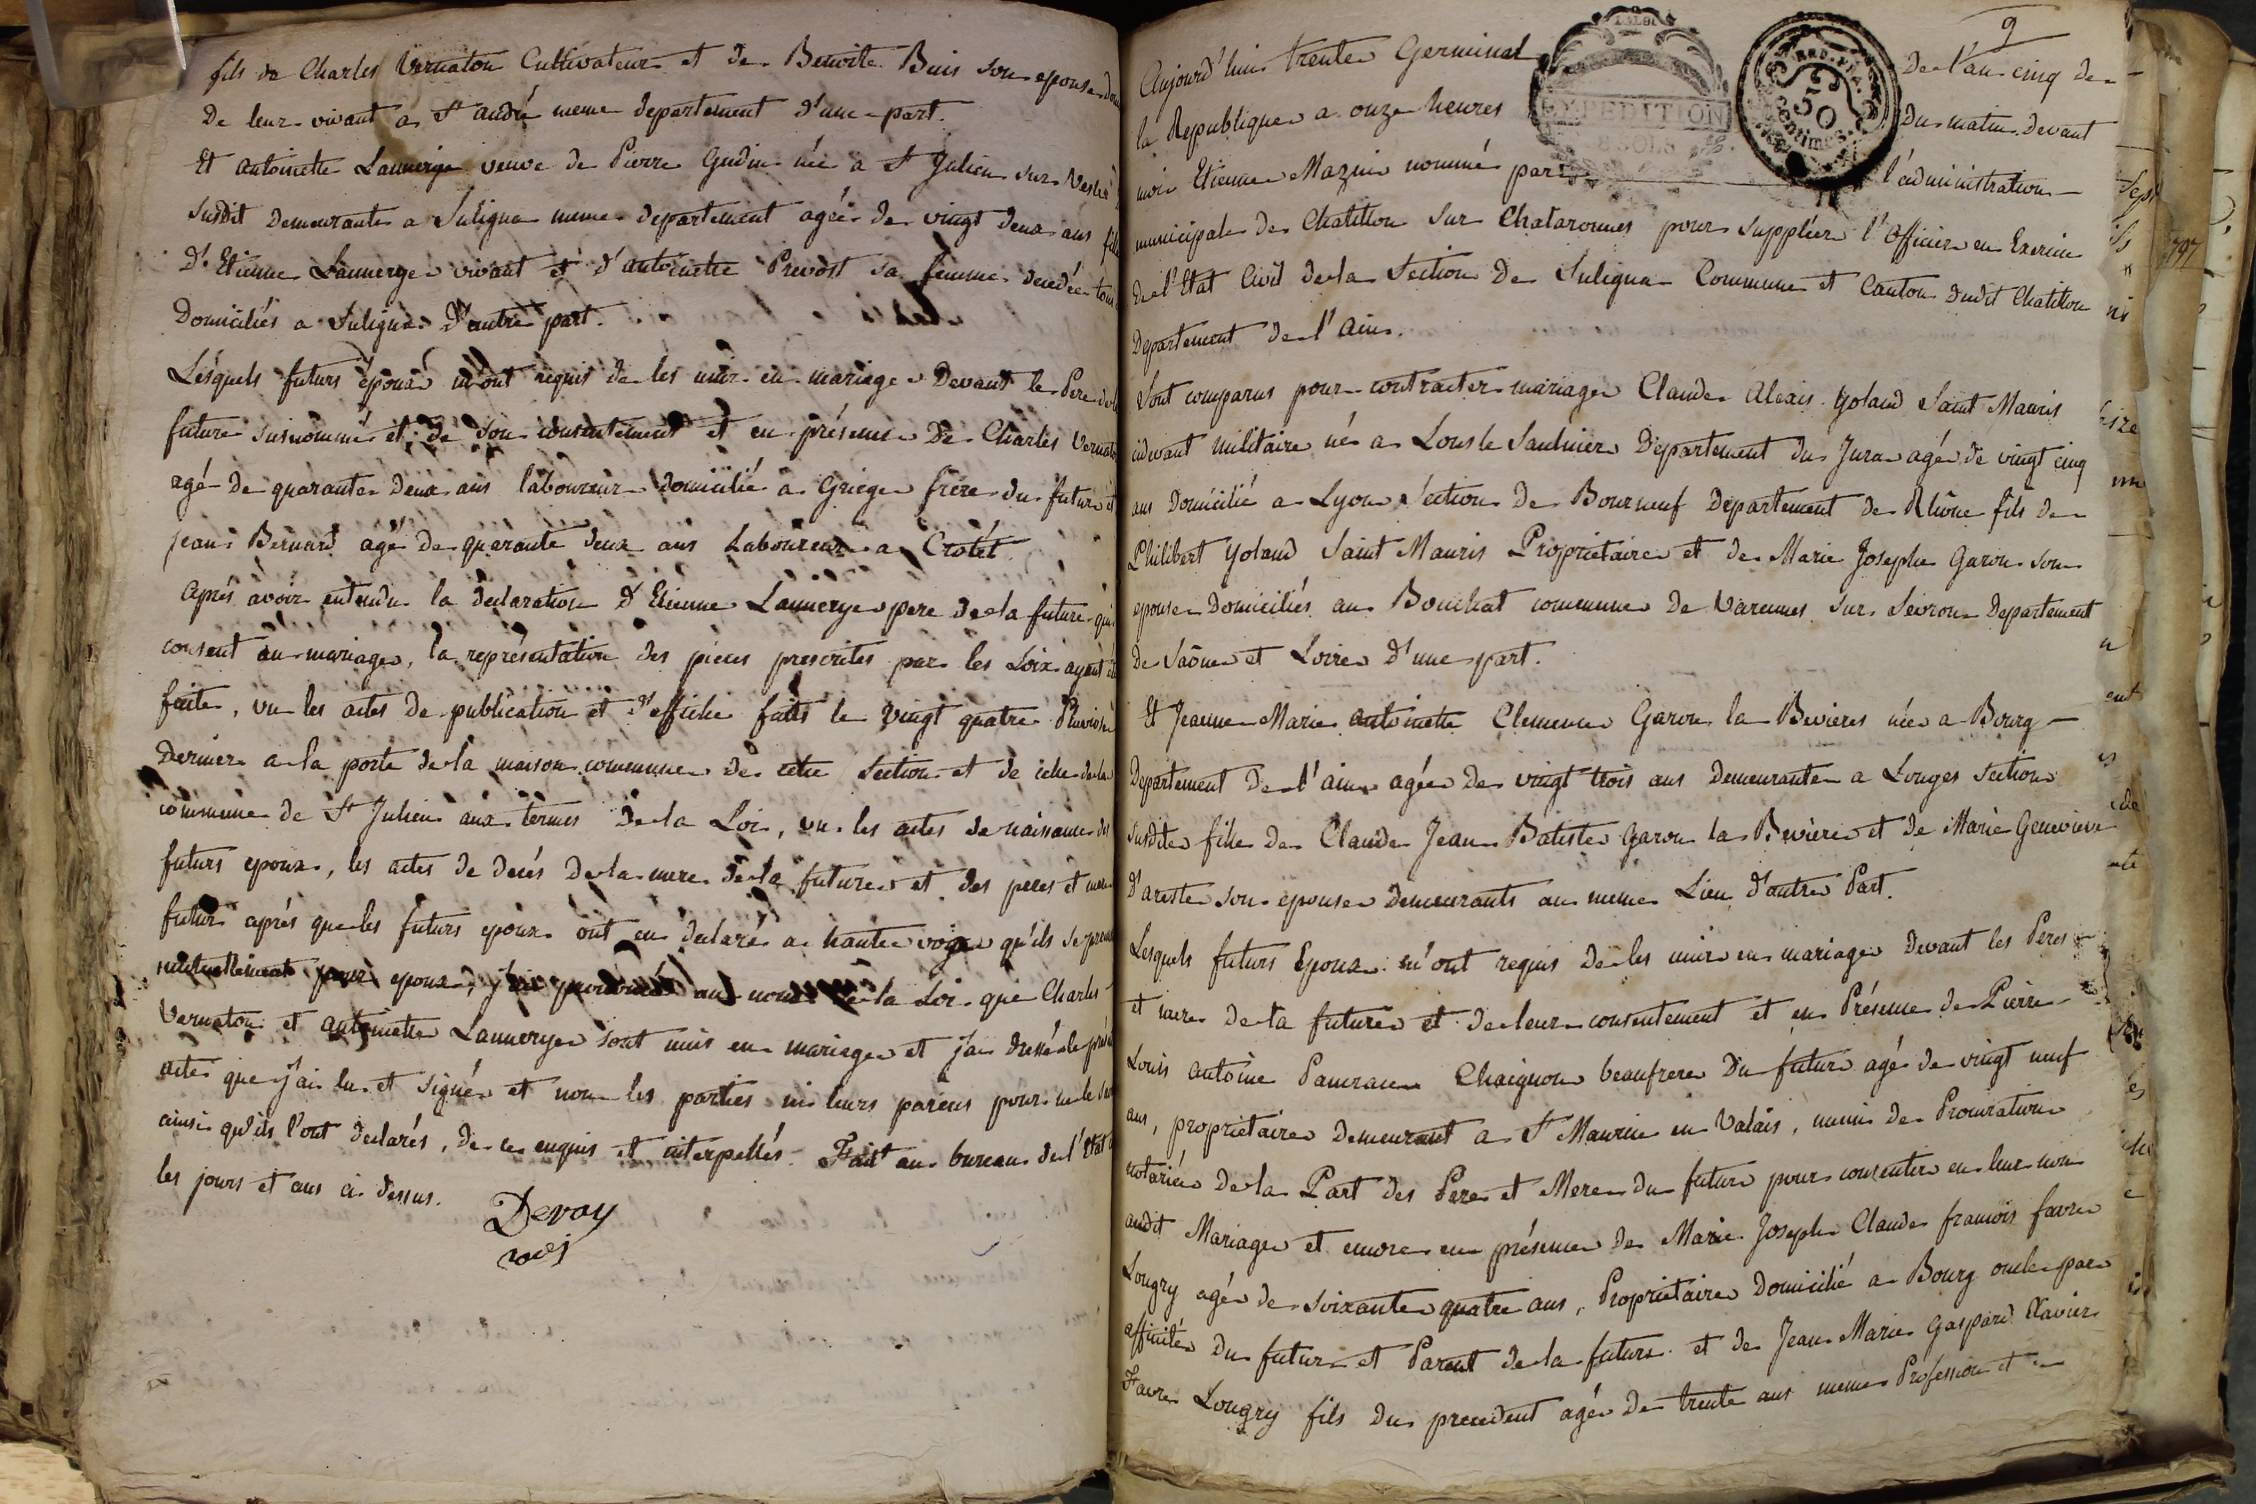 fils de Charles Vernaton Cultivateur et de Benoite Buis son epouse
De leur vivant a St andré meme departement d'une part.
Et antoinette Lannerye veuve de Pierre Gudin née a St Julien sur Vesle
susdit Demeurante a Suligna meme departement agée de vingt deux ans fille
D'Etienne Lannerye vivant et d'antoinette Prevost sa femme decedée tous
Domiciliés a Suligna D'autre part.
Lesquels futurs épouxs m'ont requis de les unir en mariage Devant le Pere de la
future susnommé et de son consentement et en présence De Charles Vernaton
agé de quarante Deux ans laboureur domicilié a Griege frere du futur et
jean Bernard agé de quarante deux ans Laboureur a Crotet
Aprés avoir entendu la declaration D'Etienne Lannerye pere de la future qui
consent au mariage, la représentation des pieces prescrites par les Loix ayant été
faite, vu les actes de publication et d'affiche faits le vingt quatre Pluviose
Dernier a la porte de la maison commune de cette Section et de celle de la
commune de St Julien aux termes De la Loi, vu les actes de naissance des
futurs epoux, les actes de decés de la mere de la future et des peres et mere
futur aprés que les futurs epoux ont eu declaré a haute voix qu'ils se prennent
mutuellement pour epoux, j'ai prononcé au nom de la Loi que Charles
Vernaton et antoinette Lannerye sont unis en mariage et j'ai dressé le présent
acte que j'ai lu et signé et non les parties ni leurs parens pour ne le
ainsi qu'ils l'ont declarés, de ce enquis et interpellés. Fait au bureau de l'Etat
les jours et ans ci dessus.
Devoy
9
Aujourd'hui trente Germinal De l'an cinq de
la Republique a onze heures Du matin Devant
moi Etienne Mazuir nommé par l'administration
municipale de Chatillon sur Chalaronnes pour supplëer l'Officier en Exercice
de l'Etat Civil de la Section De Suligna Commune et Canton dudit Chatillon
Departement de l'Ain.
Sont comparus pour contracter mariage Claude Alexis Yoland Saint Mauris
cidevant Militaire né a Lons le Saulnier Departement du Jura agé de vingt cinq
ans Domicilié a Lyon Section de Bourneuf Departement de Rhône fils de
Philibert Yoland Saint Mauris Propriétaire et de Marie Josephe Garon son
epouse Domiciliés au Bouchat commune de Varennes sur Sevron Departement
de Saône et Loire d'une part.
Et Jeanne Marie antoinette Clemence Garon la Bevieres née a Bourg
Departement De l'ain agée de vingt trois ans demeurante a Longes section
susdite fille de Claude Jean Batiste Garon la Beviere et de Marie Genevieve
d'areste son epouse Demeurants au meme Lieu d'autre Part.
Lesquels futurs Epoux m'ont requis de les unir en mariage devant les Peres
et mere de la future et de leur consentement et en Présence de Pierre
Louis Antoine Pancrace Chaignon beaufrere Du futur agé de vingt neuf
ans, propriétaire demeurant a St Maurice en Valais, muni de Procuration
notariée de la Part des Pere et Mere du futur pour consentir en leur nom
audit Mariage et encore en présence de Marie Joseph Claude francois favre
Longry agé de soixante quatre ans, Propriétaire Domicilié a Bourg oncle par
affinité du futur et Parent de la future et de Jean Marie Gaspard Xavier
Favre Longry fils du precedent agé de trente ans meme Profession et
EXPEDITION
8 SOLS
50
Centimes
1797